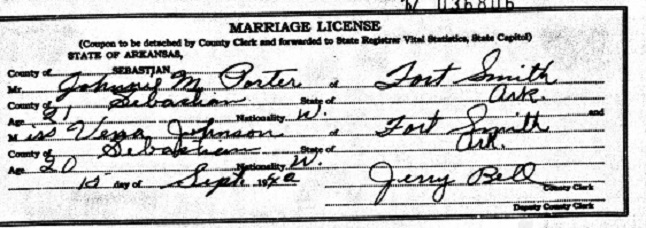 N 036806
MARRIAGE LICENSE
(Coupon to be detached by County Clerk and forwarded to State Registrar Vital Statistics, State Capitol)
STATE OF ARKANSAS,
County of SEBASTIAN
Mr. Johnnie M. Porter of Fort Smith
County of Sebastian State of Ark.
Age 21 Nationality W. and
Miss Johnson of Fort Smith
County of Sebastian State of Ark.
Age 20 Nationality W.
15 day of Sept. 1940 Jerry Bell
County Clerk
Deputy County Clerk